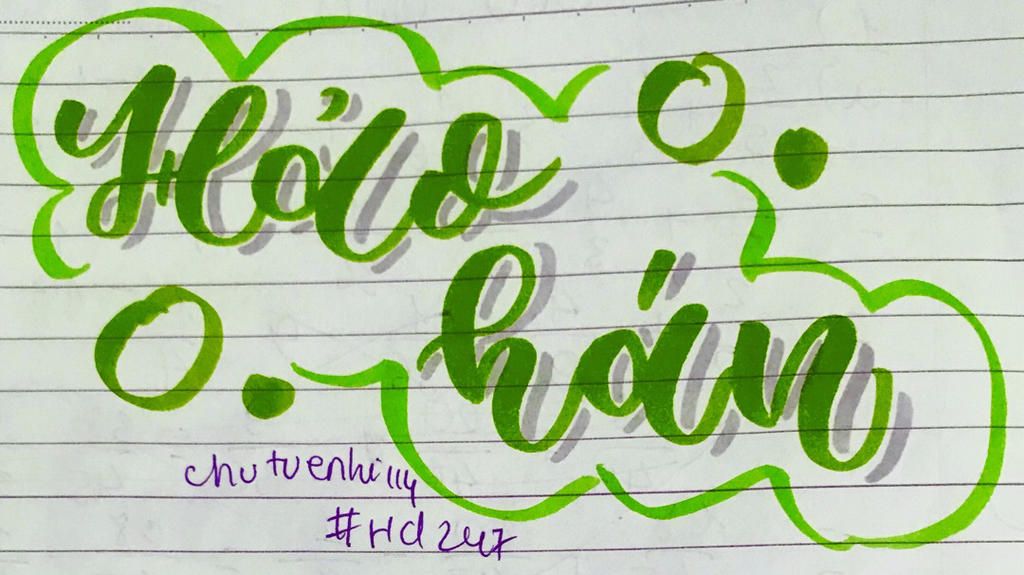 Hảo
hán
chutuenhi114
#Hd247